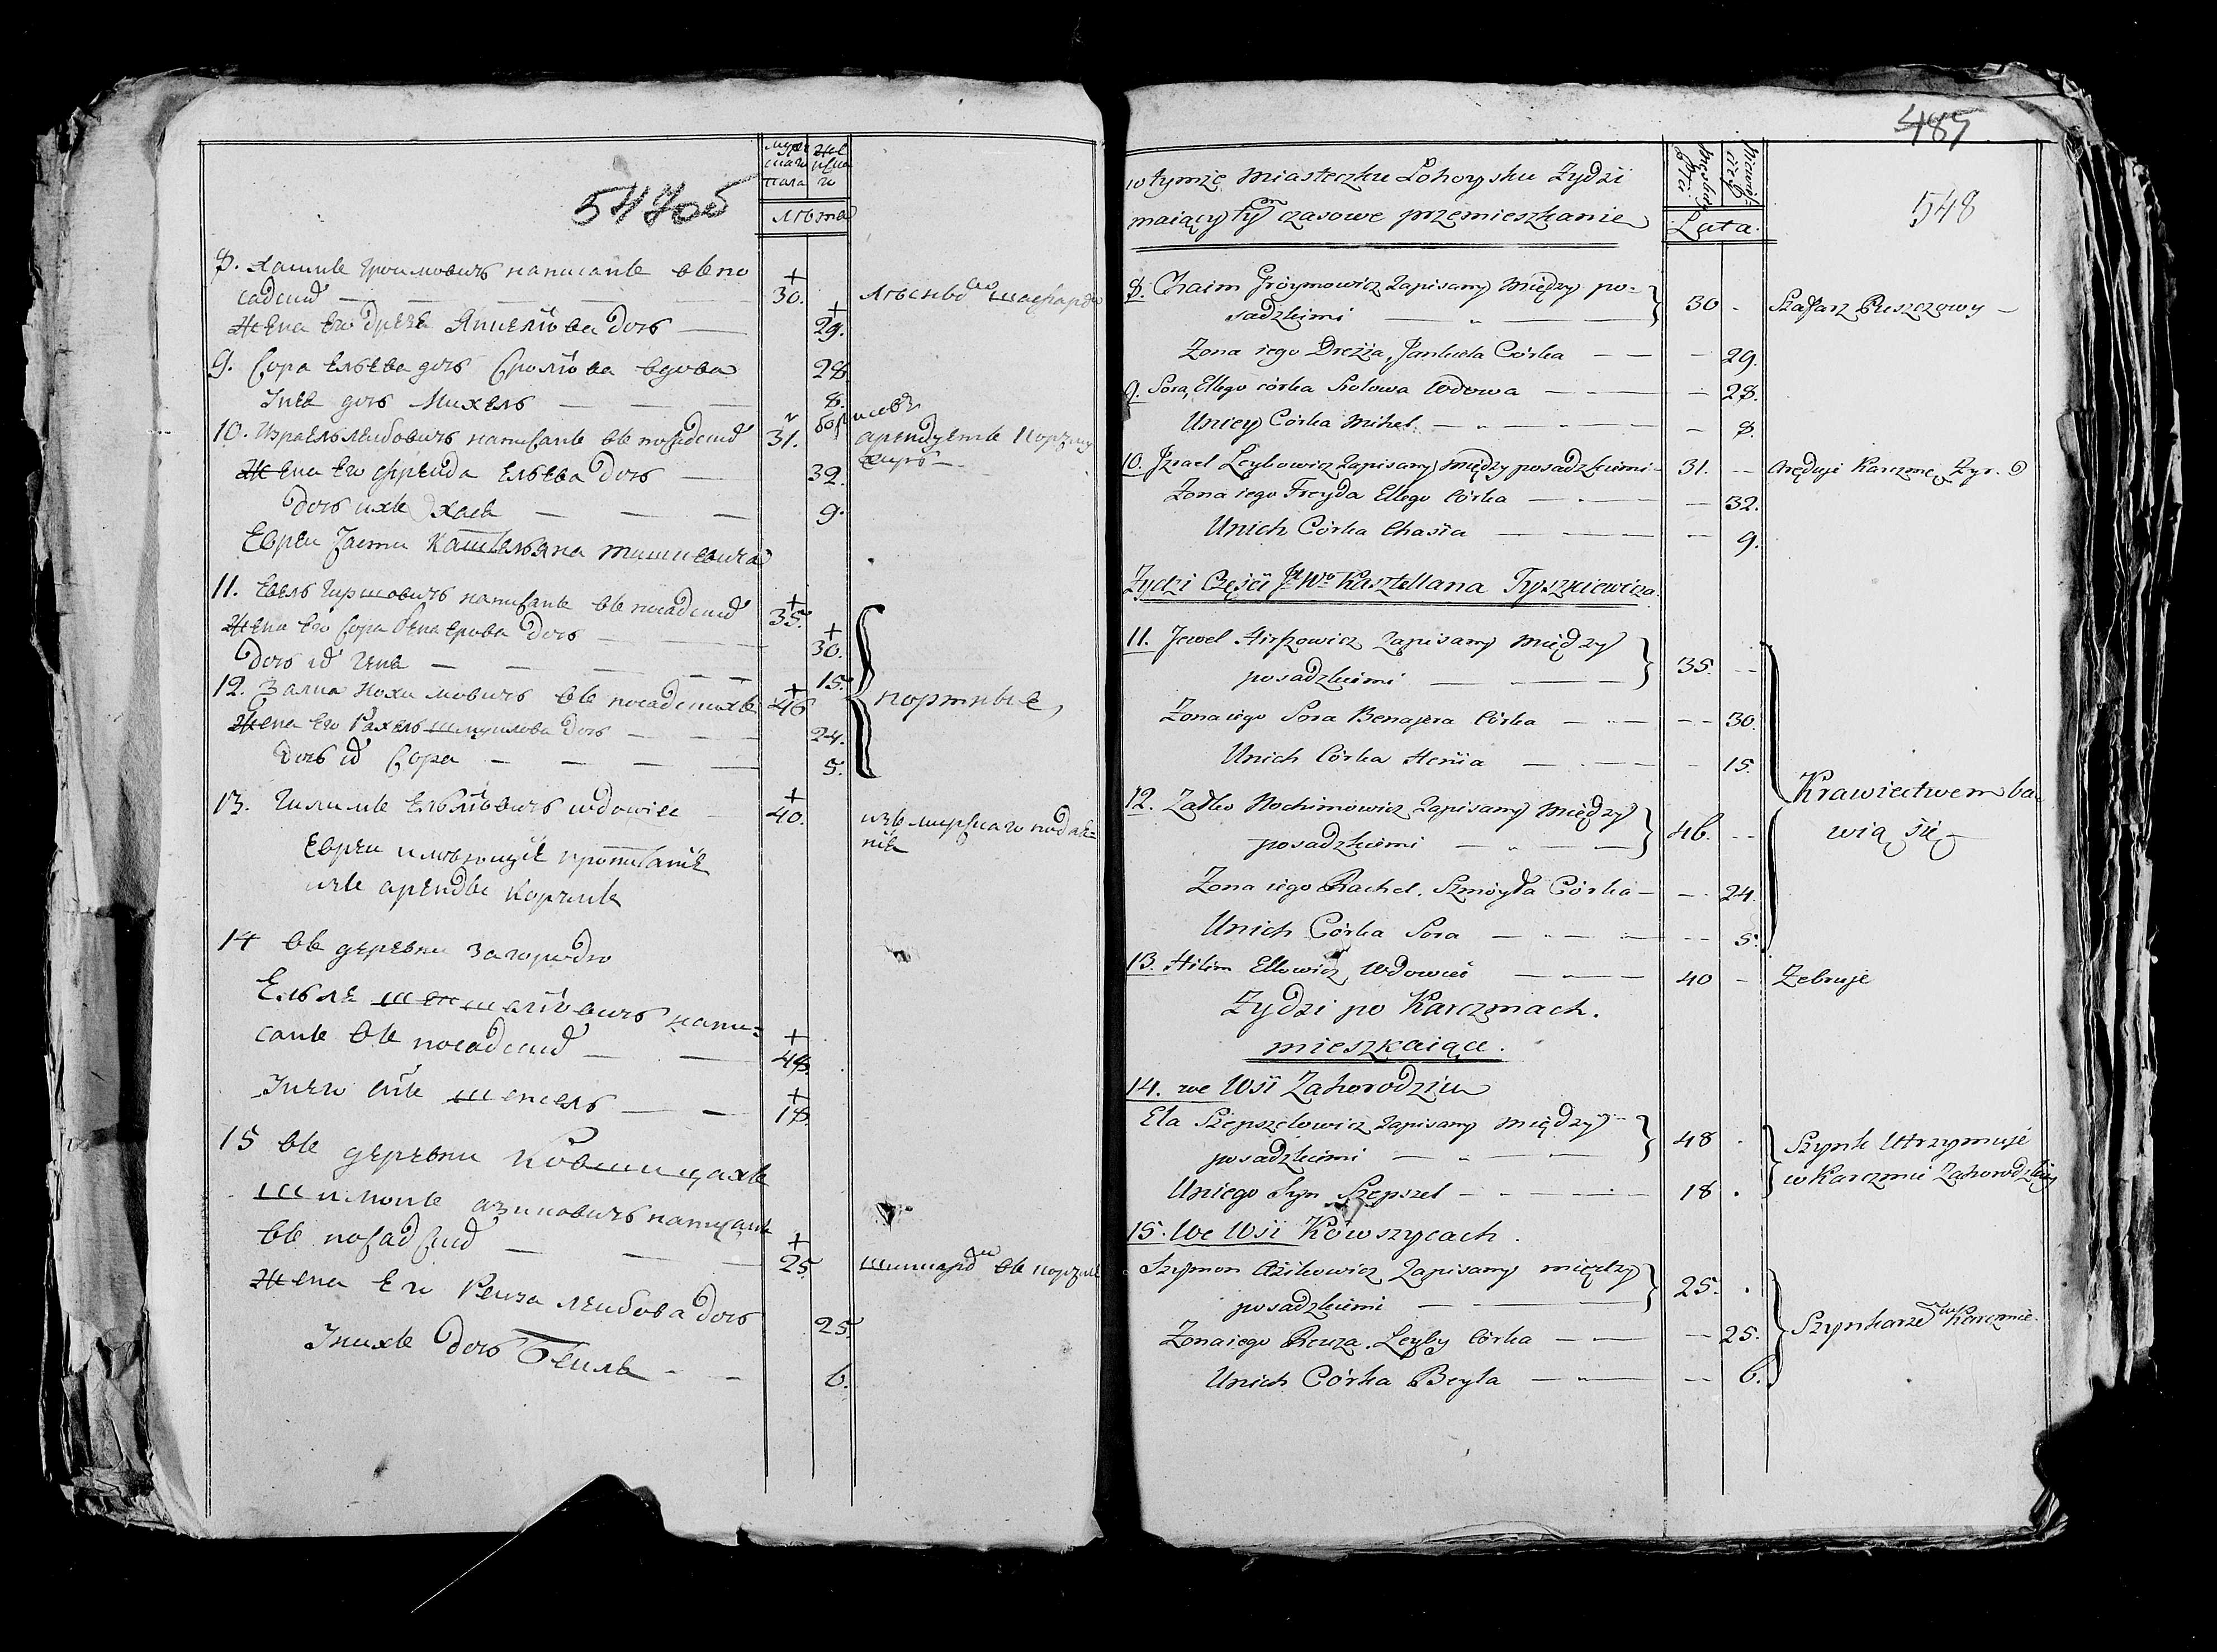 547об
мужеска пола
женска
лѣта
8. Хаимъ Гроимовичъ написанъ въ по
садскиѣ 30.
жена его Дрезе Янкелiова дочь 29.
9. Сора Ельева дочь Сролiова вдова 28
у нее дочь Михель 8.
10. Израель Лейбовичъ написанъ въ посадскиѣ 31.
арендуетъ корчму
жена его Фрейда Ельева дочь 32.
дочь ихъ Хася 9.
Евреи части Каштеляна Тишкевича
11. Евель Гиршовичъ написанъ въ посадскиѣ 35.
жена его Сора Бенаерова дочь 30.
дочь их Геня 15.
12. Залка Нохимовичъ въ посадскихъ 46
портные
жена его Рахель Шмуилова дочь 24.
дочь их Сора 5.
13. Гилимъ Ельiовичъ wdowiec 40.
Евреи имѣющiе пропитанiе
изъ аренды корчмъ
14 въ деревни Загородю
Ельѣ Шепшелiовичъ напи=
санъ въ посадскиѣ 48.
У него сынъ Шепсель 18.
15 въ деревни Ковшицахъ
Шимонъ Азиковичъ написанъ
въ посадскиѣ 25.
въ корчмѣ
жена его Реиза Леибова дочь 25.
У нихъ дочь Беила 6.
485
548
w tymże Miasteczku Łohoysku Żydzi
maiący tym czasowe przemieszkanie
Lata.
8. Chaim Groymowicz Zapisany między po=
sadzkiemi 30 Szafarz Puszczowy
Żona iego Drezia, Jankiela Córka 29.
9. Sora, Ellego córka Srolowa Wdowa 28.
Uniey Córka Mihel. 8.
10. Jzrael Leybowicz Zapisany między posadzkiemi 31. Aręduje Karczmę Zyr.
Żona iego Freyda Ellego Córka 32.
Unich Córka Chasia 9.
Żydzi Częsci JW Kasztellana Tyszkiewicza.
11. Jewel Hirszowicz Zapisany między
posadzkiemi 35.
Żona iego Sora Benajera Córka 30.
Unich Córka Henia 15.
Krawiectwem ba
wią się
12. Zadko Nochimowicz Zapisany między
posadzkiemi 46.
Żona iego Rachel. Szmoyła Córka 24.
Unich Córka Sora 5.
13. Hilim Ellowicz, Wdowiec 40 Żebruje
Żydzi po Karczmach.
mieszkaiące.
14. we Wsi Zahorodziu
Ela Szepszelowicz Zapisany między
posadzkiemi 48
Szynk Utrzymuje
w Karczmie Zahorodzkiey
Uniego Syn Szepszel 18.
15. We Wsi Kowszycach.
Szymon Aźikowicz Zapisany między
posadzkiemi 25.
Szynkarze w Karczmie.
Żona iego Reuza. Leyby Córka 25.
Unich Córka Beyla 6.